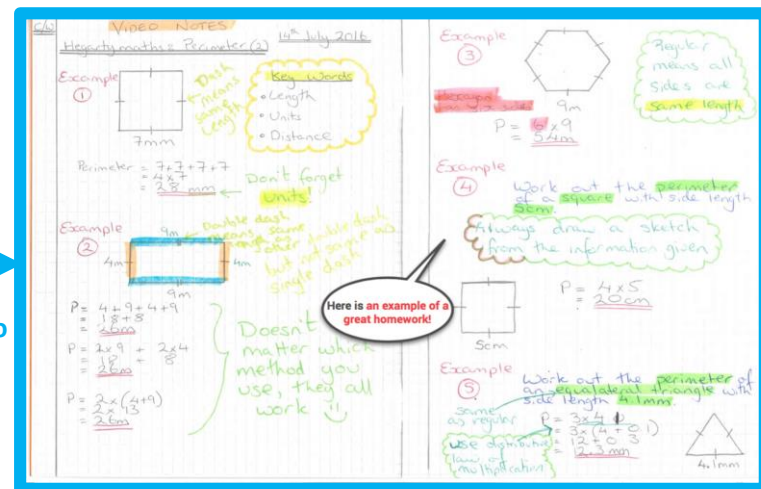 C/W
VIDEO NOTES
14th July 2016
Hegartymaths: Perimeter (2)
Example
1
7mm
Dash
means
same
length
Key Words
• Length
• Units
• Distance
Perimeter = 7+7+7+7
= 4x7
= 28 mm
Don't forget
units!
Example
2
9m
4m
4m
9m
Double dash
means same
as
other double dash
but not same as
single dash
P = 4+9+4+9
= 18+8
= 26m
P = 2x9 + 2x4
= 18 + 8
= 26m
P = 2x(4+9)
= 2x13
= 26m
Doesn't
matter which
method you
use, they all
work
Here is an example of a
great homework!
Example
3
9m
Regular
means all
sides are
same length
Hexagon
P = 6 x 9
= 54m
Example
4
Work out the perimeter
of a square with side length
5cm.
Always draw a sketch
from the information given
5cm
P = 4x5
= 20cm
Example
5
Work out the perimeter of
an equalateral triangle with
side length 4.1mm.
same
as regular
use distributive
law of
multiplication
P = 3x4.1
= 3x(4+0.1)
= 12+0.3
= 12.3mm
4.1mm